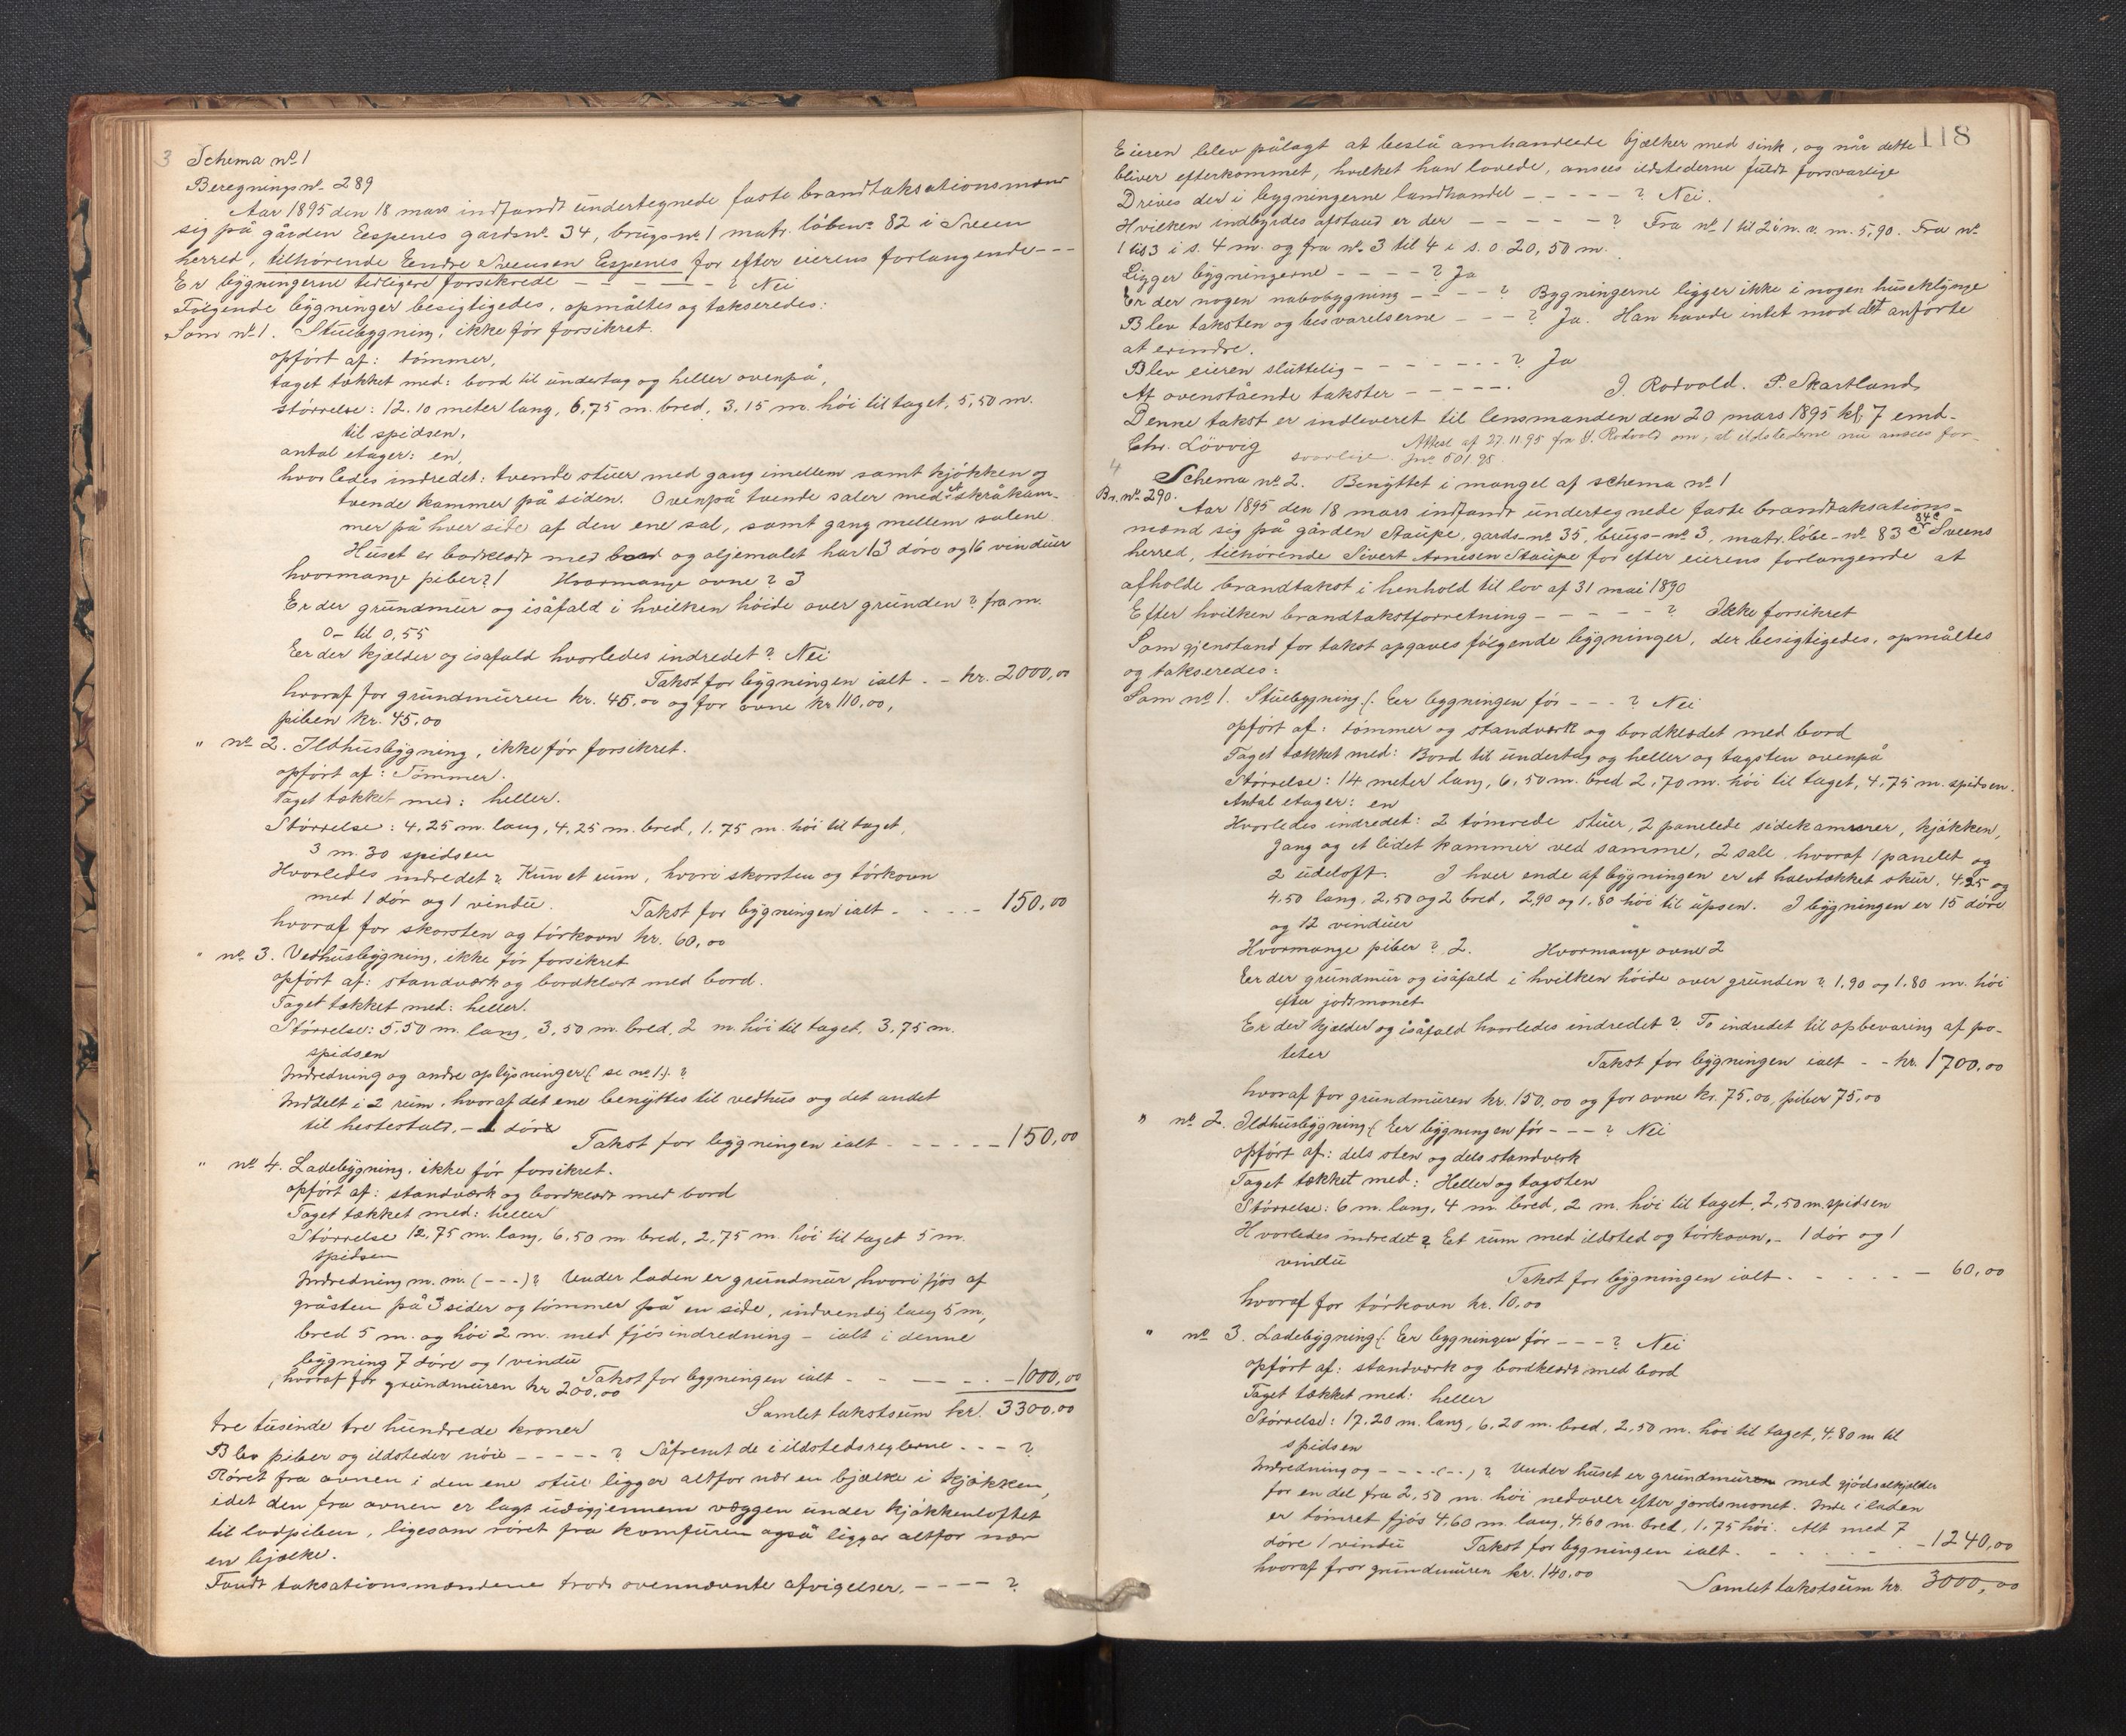 3 Schema no. 1
Beregningsno. 289
Aar 1895 den 18 mars indfandt undertegnede faste brandtaksationsmænd
sig på gården Eespenes gardsno. 34, brugs-no. 1 matr. løbeno. 82 i Sveen
herred, tilhørende Eendre Svensen Espenes for efter eierens forlangende - - -
Er bygningerne tidligere forsikrede - - - - - ? Nei
Følgende bygninger besigtigedes, opmåltes og takseredes:
Som no. 1. Stuebygning, ikke før forsikret.
opført af: tømmer,
taget tækket med: bord til undertag og heller ovenpå,
størrelse: 12.10 meter lang, 6,75 m. bred, 3.15 m. høi til taget, 5,50 m.
til spidsen,
antal etager: en,
hvorledes indredet: tvende stuer med gang imellem samt kjøkken og
tvende kammer på siden. Ovenpå tvende saler med et skråkam-
mer på hver side af den ene sal, samt gang mellem salene
Huset er bordklædt med bord og oljemalet har 13 døre og 16 vinduer
hvormange piber? 1 Hvormange ovne? 3
Er der grundmur og isåfald i hvilken høide over grunden? fra m.
0- til 0,55
Er der kjælder og isåfald hvorledes indredet? Nei
Takst for bygningen ialt. - kr. 2000,00
hvoraf for grundmuren kr. 45,00 og for ovne kr 110,00,
piben kr. 45,00
" no. 2. Ildhusbygning, ikke før forsikret.
opført af: Tømmer.
Taget tækket med: heller.
Størrelse: 4,25 m. lang, 4,25 m. bred, 1,75 m. høi til taget,
3 m. 30 spidsen
Hvorledes indredet? Kun et rum, hvori skorsten og tørkovn
med 1 dør og 1 vindu. Takst for bygningen ialt - - - - 150,00
hvoraf for skorsten og tørkovn kr. 60,00
" no. 3. Vedhusbygning, ikke før forsikret
opført af: standværk og bordklædt med bord.
Taget tækket med: heller.
Størrelse: 5,50 m. lang, 3,50 m. bred, 2 m. høi til taget, 3,75 m.
spidsen
Indredning og andre oplysninger (se no. 1). ?
Inddelt i 2 rum, hvoraf det ene benyttes til vedhus og det andet
til hestestald, - 1 døre
Takst for bygningen ialt - - - - - 150,00
" no. 4. Ladebygning, ikke før forsikret.
opført af: standværk og bordklædt med bord
Taget tækket med: heller
Størrelse 12,75 m. lang, 6,50 m bred, 2,75 m. høi til taget 5 m.
spidsen
Indredning m. m. (- - -)? Under laden er grundmur hvori fjøs af
gråsten på 3 sider og tømmer på en side, indvendig lang 5 m,
bred 5 m. og høi 2 m. med fjøsindredning - ialt i denne
bygning 7 døre og 1 vindu
Takst for bygningen ialt - - - - - 1000,00
hvoraf for grundmuren kr 200,00
Samlet takstsum kr. 3300,00
tre tusinde tre hundrede kroner
Blev piber og ildsteder nøie - - - - - ? Såfremt de i ildstedsreglerne - - - ?
Røret fra ovnen i den ene stue ligger altfor nær en bjælke i kjøkken,
idet den fra ovnen er lagt udigjennem væggen under kjøkkenloftet
til lodpiben, ligesom røret fra komfuren også ligger altfor nær
en bjælke.
Fandt taksationsmændene trods ovennævnte afvigelser, - - - - ?
118
Eieren blev pålagt at beslå omhandlede bjælker med sink, og når dette
bliver efterkommet, hvilket han lovede, ansees ildstederne fuldt forsvarlige
Drives der i bygningerne landhandel - - - - - ? Nei.
Hvilken indbyrdes afstand er der - - - - - ? Fra no. 1 til 2 i n. v. m. 5,90. Fra no.
1 til 3 i s. 4 m. og fra no. 3 til 4 i s. o. 20,50 m.
Ligger bygningerne - - - - ? Ja
Er der nogen nabobygning - - - - ? Bygningerne ligger ikke i nogen huseklynge
Blev taksten og besvarelserne - - - ? Ja. Han havde intet mod det anførte
at erindre.
Blev eieren sluttelig - - - - - - - ? Ja
At ovenstående takster - - - - - . J. Rodvold. P. Skartland,
Denne takst er indleveret til lensmanden den 20 mars 1895 kl. 7 emd.
Chr. Løvvig Attest af 27.11.95 fra J. Rodvold om, at ildstederne nu ansees for-
svarlige. Jno. 501.95
4
Schema no. 2. Benyttet i mangel af schema no. 1
Br. no. 290.
Aar 1895 den 18 mars indfandt undertegnede faste brandtaksations-
mænd sig på gården Staupe, gards-no. 35, brugs-no. 3, matr. løbe-no. 83 c 84c i Sveens
herred, tilhørende Sivert Arnesen Staupe for efter eierens forlangende at
afholde brandtakst i henhold til lov af 31 mai 1890
Efter hvilken brandtakstforretning - - - - - ? Ikke forsikret
Som gjenstand for takst opgaves følgende bygninger, der besigtigedes, opmåltes
og takseredes:
Som no. 1. Stuebygning (. Eer bygningen før - - - ? Nei
opført af: tømmer og standværk og bordklædet med bord
Taget tækket med: Bord til undertag og heller og tagsten ovenpå
Størrelse: 14 meter lang, 6,50 m. bred 2,70 m. høi til taget, 4,75 m. spidsen.
Antal etager: en
Hvorledes indredet: 2 tømrede stuer, 2 panelede sidekammrer, kjøkken,
gang og et lidet kammer ved samme, 2 sale, hvoraf 1 panelet og
2 udeloft. I hver ende af bygningen er et halvtækket skur, 4,25 og
4,50 lang, 2,50 og 2 bred, 2,90 og 1,80 høi til upsen. I bygningen er 15 døre
og 12 vinduer
Hvormange piber? 2. Hvormange ovne 2
Eer der grundmur og isåfald i hvilken høide over grunden? 1,90 og 1,80 m. høi
efter jordsmonet
Er der kjælder og isåfald hvorledes indredet? To indredet til opbevaring af po-
teter
Takst for bygningen ialt - - kr. 1700,00
hvoraf for grundmuren kr. 150,00 og for ovne kr. 75,00, piber 75,00
" no. 2. Ildhusbygning (. Eer bygningen før - - - ? Nei
opført af: dels sten og dels standverk
Taget tækket med: Heller og tagsten
Størrelse: 6 m. lang, 4 m. bred, 2 m. høi til taget, 2,50 m. spidsen
Hvorledes indredet? Eet rum med ildsted og tørkovn. - 1 dør og 1
vindu
Takst for bygningen ialt. - - - - - 60,00
hvoraf for tørkovn kr. 10,00
" no. 3. Ladebygning (. Eer bygningen før - - - ? Nei
opført af: standværk og bordklædt med bord
Taget tækket med: heller
Størrelse: 17,20 m. lang, 6,20 m. bred, 2,50 m. høi til taget, 4,80 m til
spidsen
Indredning og - - - - (- -) ? Under huset er grundmuren med gjødselkjelder
for en del fra 2,50 m. høi nedover efter jordsmonet. Inde i laden
er tømret fjøs 4,60 m. lang, 4,60 m. bred, 1,75 høi. Alt med 7
døre 1 vindu Takst for bygningen ialt. - - - - - 1240,00
hvoraf fror grundmuren kr. 140,00
Samlet takstsum kr. 3000,00